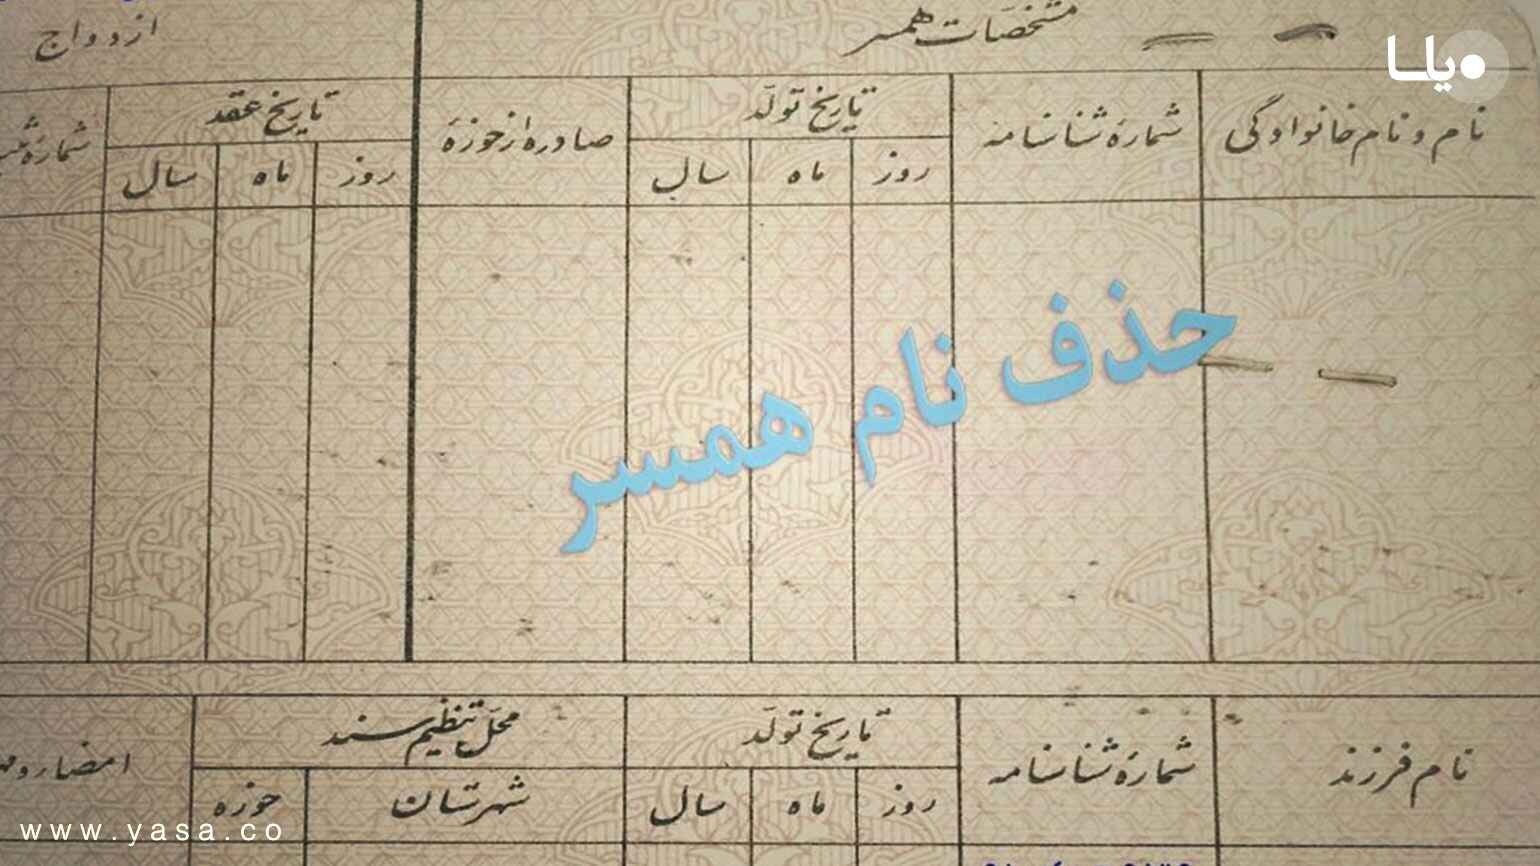 یاسا
مشخصات همسر
ازدواج
نام و نام خانوادگی
شمارهٔ شناسنامه
تاریخ تولّد
صادره از حوزهٔ
تاریخ عقد
شمارهٔ
روز ماه سال
روز ماه سال
حذف نام همسر
نام فرزند
شمارهٔ شناسنامه
تاریخ تولّد
محلّ تنظیم سند
روز ماه سال
شهرستان
حوزه
www.yasa.co